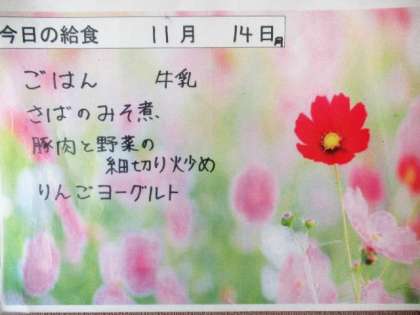 今日の給食 11月 14日月
ごはん 牛乳
さばのみそ煮
豚肉と野菜の
細切り炒め
りんごヨーグルト